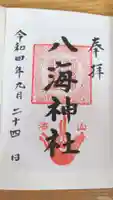 奉拝
八海神社
令和四年九月二十四日